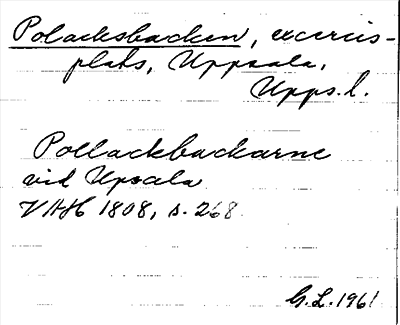 Polacksbacken, excercis-
plats, Uppsala,
Upps. l.
Pollackbackarne
vid Upsala
VAH 1808, s. 268
G.L. 1961